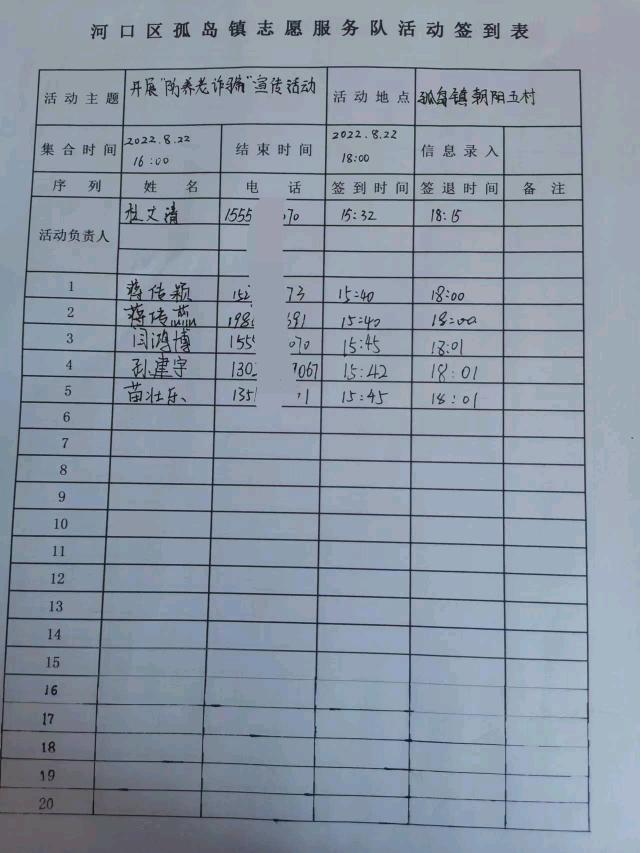 河口区孤岛镇志愿服务队活动签到表
活动主题 开展"防养老诈骗"宣传活动 活动地点 孤岛镇朝阳五村
集合时间 2022.8.22 16:00 结束时间 2022.8.22 18:00 信息录入
序列 姓名 电话 签到时间 签退时间 备注
活动负责人 杜文清 1555 070 15:32 18:15
1 蒋传颖 152 73 15:40 18:00
2 蒋传燕 198 691 15:40 18:00
3 闫鸿博 155 070 15:45 18:01
4 孙建宇 130 7067 15:42 18:01
5 苗壮乐 135 1 15:45 18:01
6
7
8
9
10
11
12
13
14
15
16
17
18
19
20